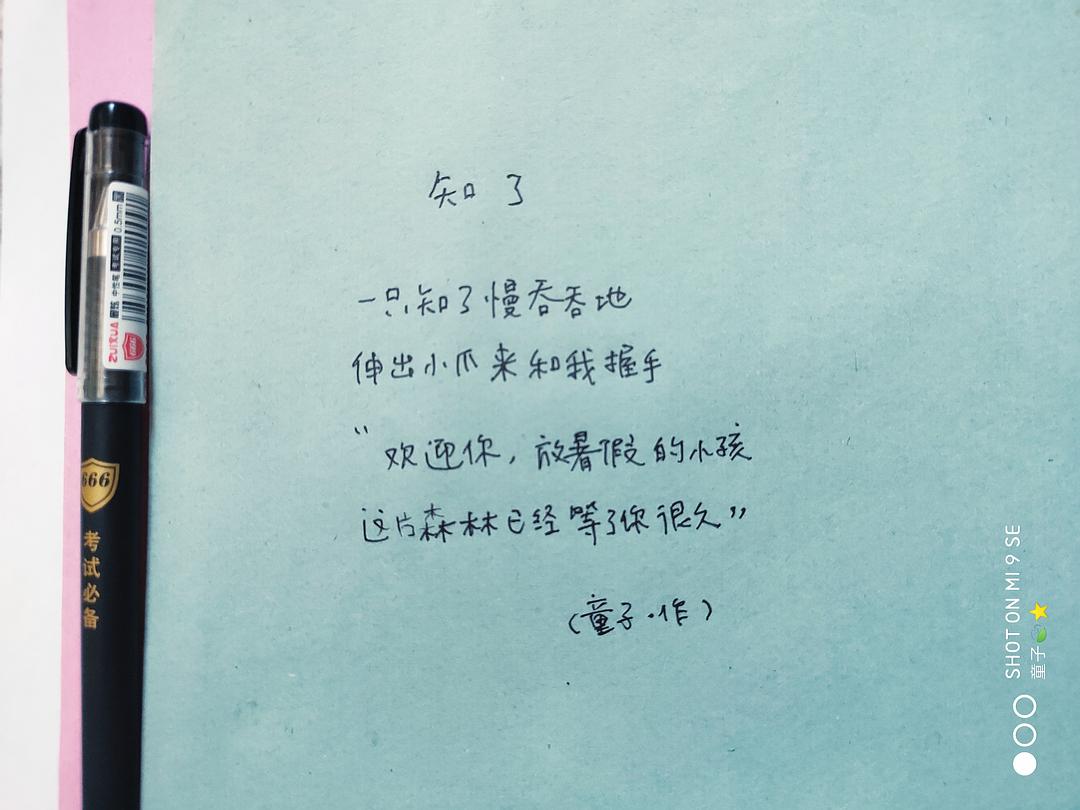 知了
一只知了慢吞吞地
伸出小爪来和我握手
“欢迎你，放暑假的小孩
这片森林已经等了你很久”
（童子·作）
666
考试必备
ZUIXUA
中性笔
考试专用
0.5mm
666
SHOT ON MI 9 SE
童子🍃⭐